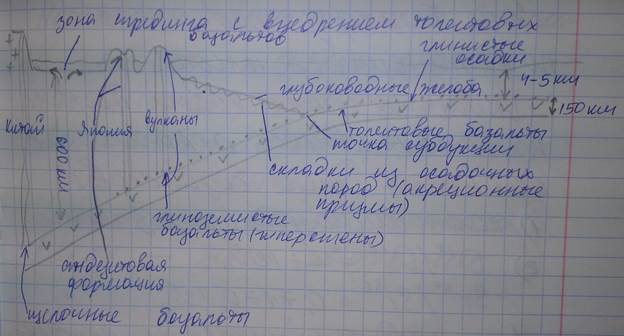 зона спрединга с внедрением толеитовых
базальтов
глинистые
осадки
4-5 км
глубоководные желоба
150 км
Китай
600 км
Япония
вулканы
толеитовые базальты
точка субдукции
складки из осадочных
пород (акреционные
призмы)
глиноземистые
базальты (гиперстены)
андезитовая
формация
щелочные базальты